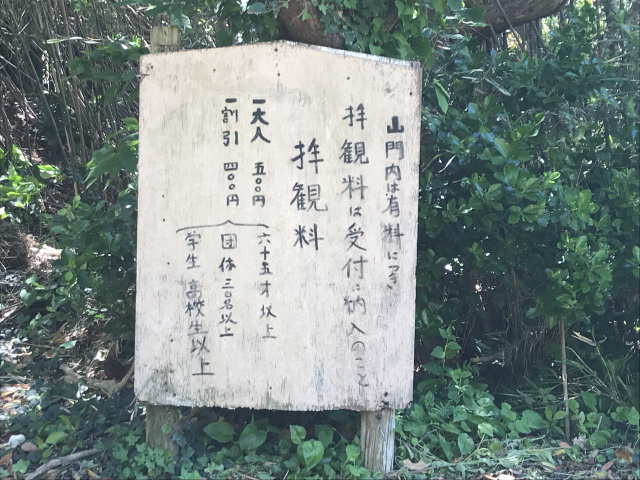 山門内は有料につき
拝観料は受付に納入のこと
拝観料
一大人 五〇〇円
一割引 四〇〇円
六十五才以上
団体三〇名以上
学生 高校生以上